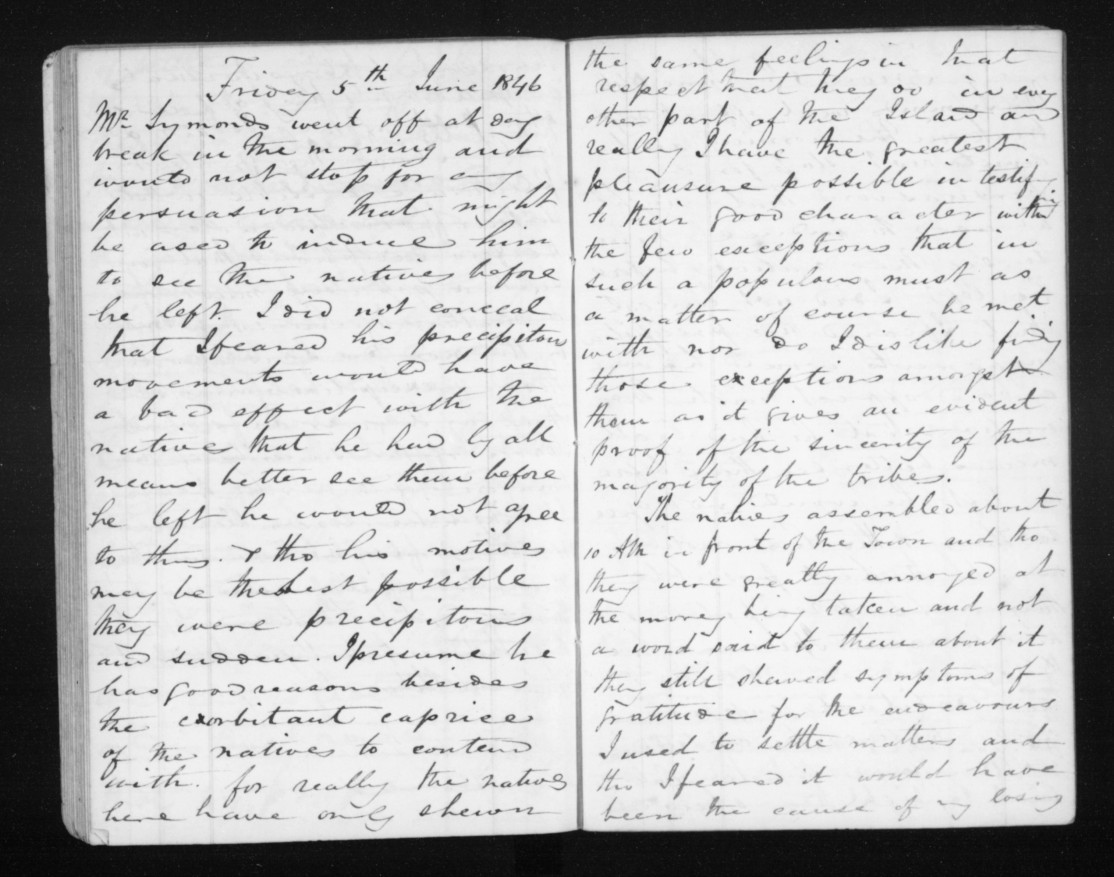 Friday 5th June 1846
Mr Symonds went off at day
break in the morning and
would not stop for any
persuasion that might
be ased to induce him
to see the natives before
he left. I did not conceal
that I feared his precipitou
movements would have
a bad effect with the
natives that he had by all
means better see them before
he left he would not agree
to this. & tho his motives
may be the best possible
they were precipitous
and sudden. I presume he
has good reasons besides
the exorbitant caprice
of the natives to contend
with. for really the natives
here have only shewn
the same feelings in that
respect that they do in evey
other part of the Island and
really I have the greatest
pleausure possible in testify
to their good character with
the few exceptions that in
such a populous must as
a matter of course be met
with nor do I dislike findg
those exceptions amongst
them as it gives an evident
proof of the sincerity of the
majority of the tribes.
The natives assembled about
10 AM in front of the Town and tho
they were greatly annoyed at
the money being taken and not
a word said to them about it
they still shewed symptoms of
gratitude for the endeavours
I used to settle matters and
tho I feared it would have
been the cause of my losing